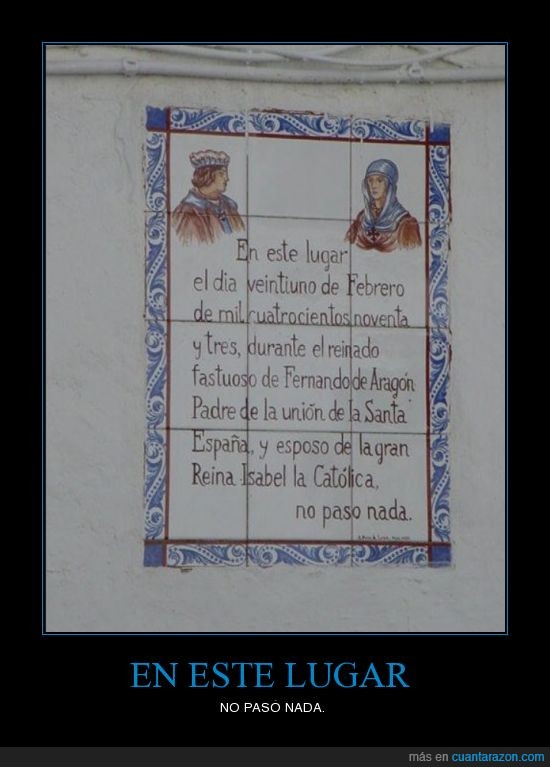 En este lugar
el dia veintiuno de Febrero
de mil cuatrocientos noventa
y tres, durante el reinado
fastuoso de Fernando de Aragón
Padre de la unión de la Santa
España, y esposo de la gran
Reina Isabel la Católica,
no paso nada.
EN ESTE LUGAR
NO PASO NADA.
más en cuantarazon.com